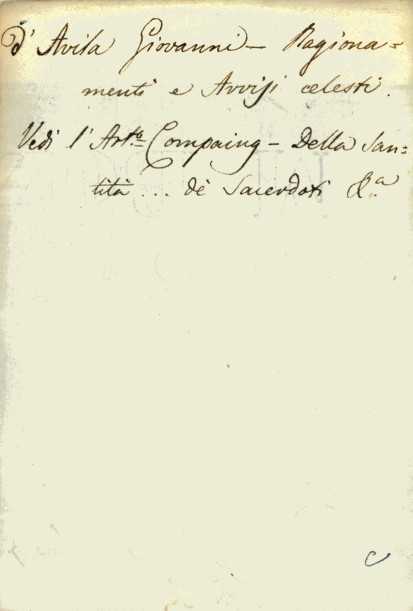 D' Avila Giovanni — Ragiona=
menti e Avvisi celesti.
Vedi l'Arto. Compaing — Della San=
tità ... dè Sacerdoti &a.
C